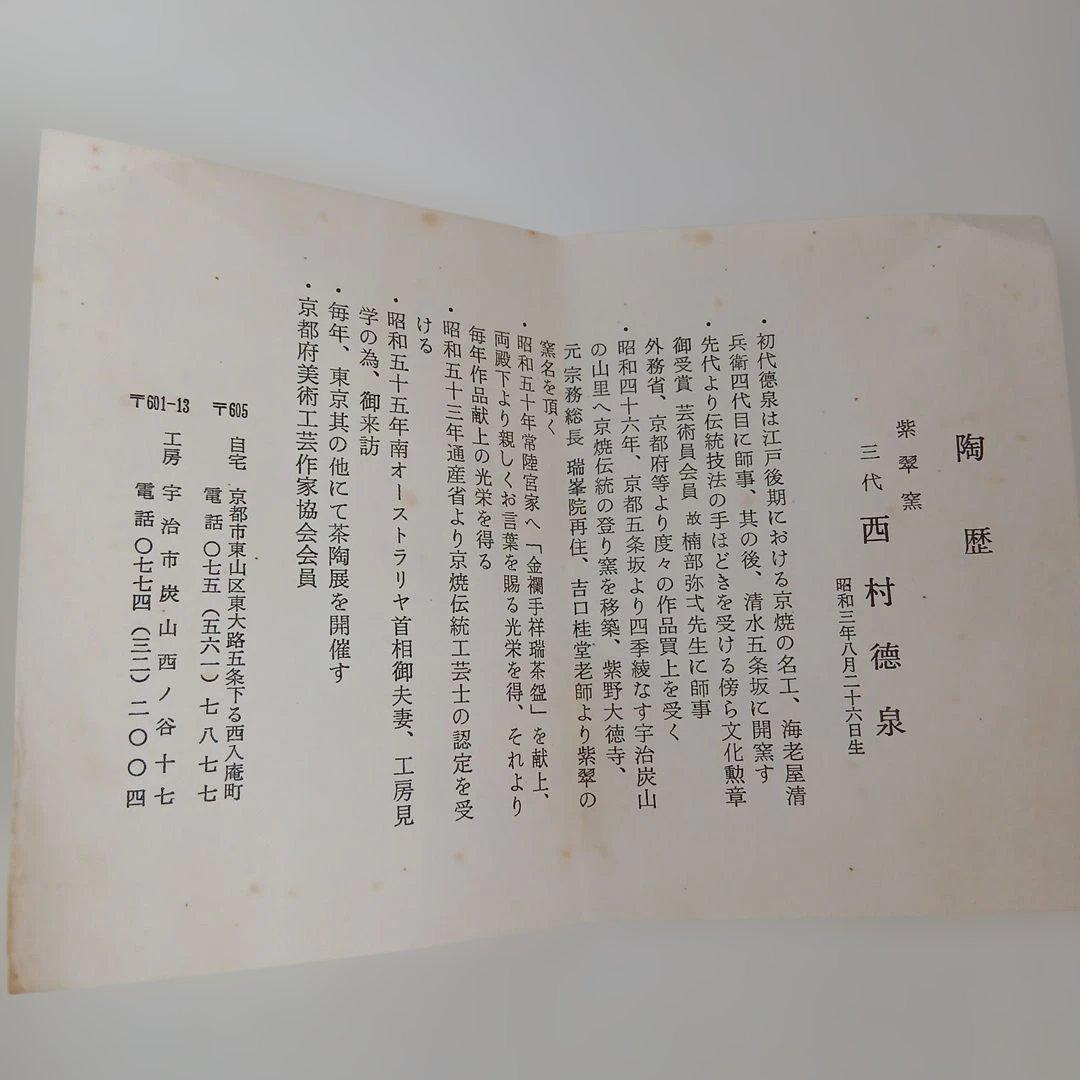 陶歴
紫翠窯
三代 西村徳泉
昭和三年八月二十六日生
・初代徳泉は江戸後期における京焼の名工、海老屋清
兵衛四代目に師事、其の後、清水五条坂に開窯す
・先代より伝統技法の手ほどきを受ける傍ら文化勲章
御受賞 芸術員会員 故 楠部弥弌先生に師事
外務省、京都府等より度々の作品買上を受く
・昭和四十六年、京都五条坂より四季綾なす宇治炭山
の山里へ京焼伝統の登り窯を移築、紫野大徳寺、
元宗務総長 瑞峯院再住、吉口桂堂老師より紫翠の
窯名を頂く
・昭和五十年常陸宮家へ「金襴手祥瑞茶盌」を献上、
両殿下より親しくお言葉を賜る光栄を得、それより
毎年作品献上の光栄を得る
・昭和五十三年通産省より京焼伝統工芸士の認定を受
ける
・昭和五十五年南オーストラリヤ首相御夫妻、工房見
学の為、御来訪
・毎年、東京其の他にて茶陶展を開催す
・京都府美術工芸作家協会会員
〒605 自宅 京都市東山区東大路五条下る西入庵町
電話〇七五(五六一)七八七七
〒601-13 工房 宇治市炭山西ノ谷十七
電話〇七七四(三二)二〇〇四